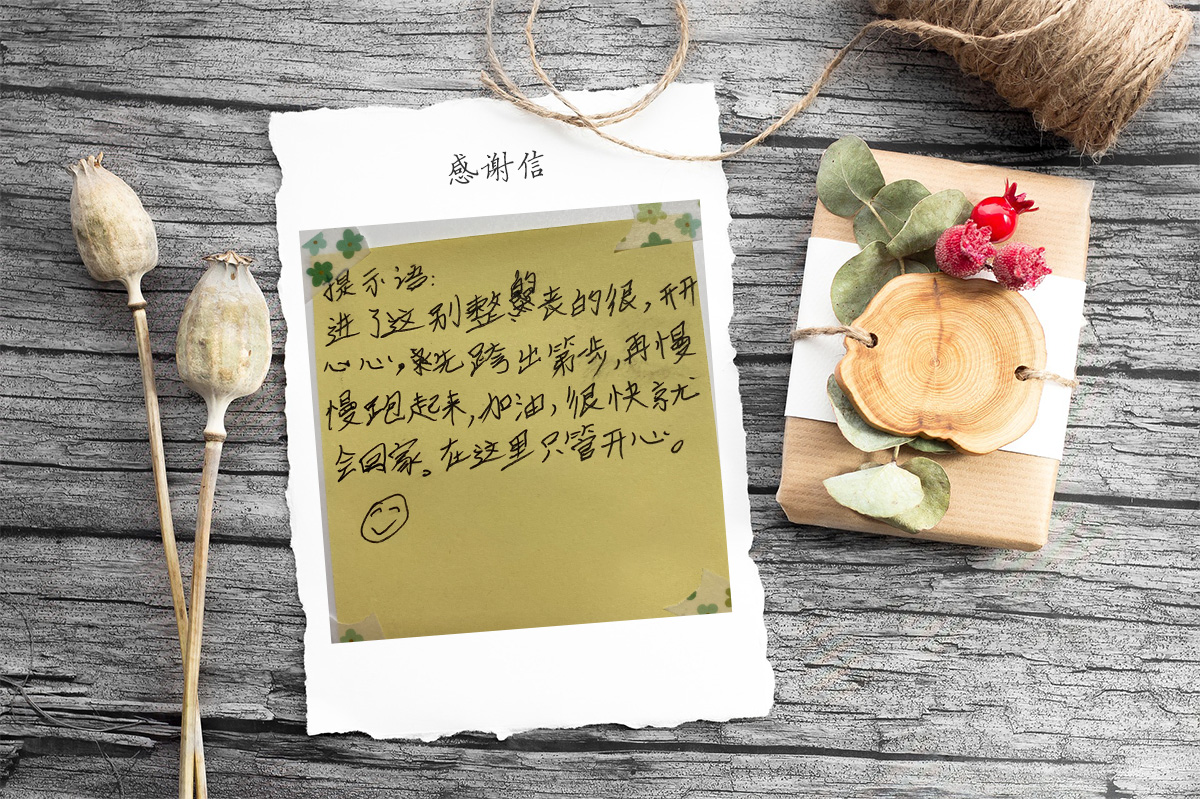 感谢信
提示语：
进了这别整丧的很，开开
心心，先跨出第一步，再慢
慢跑起来，加油，很快就
会回家。在这里只管开心。